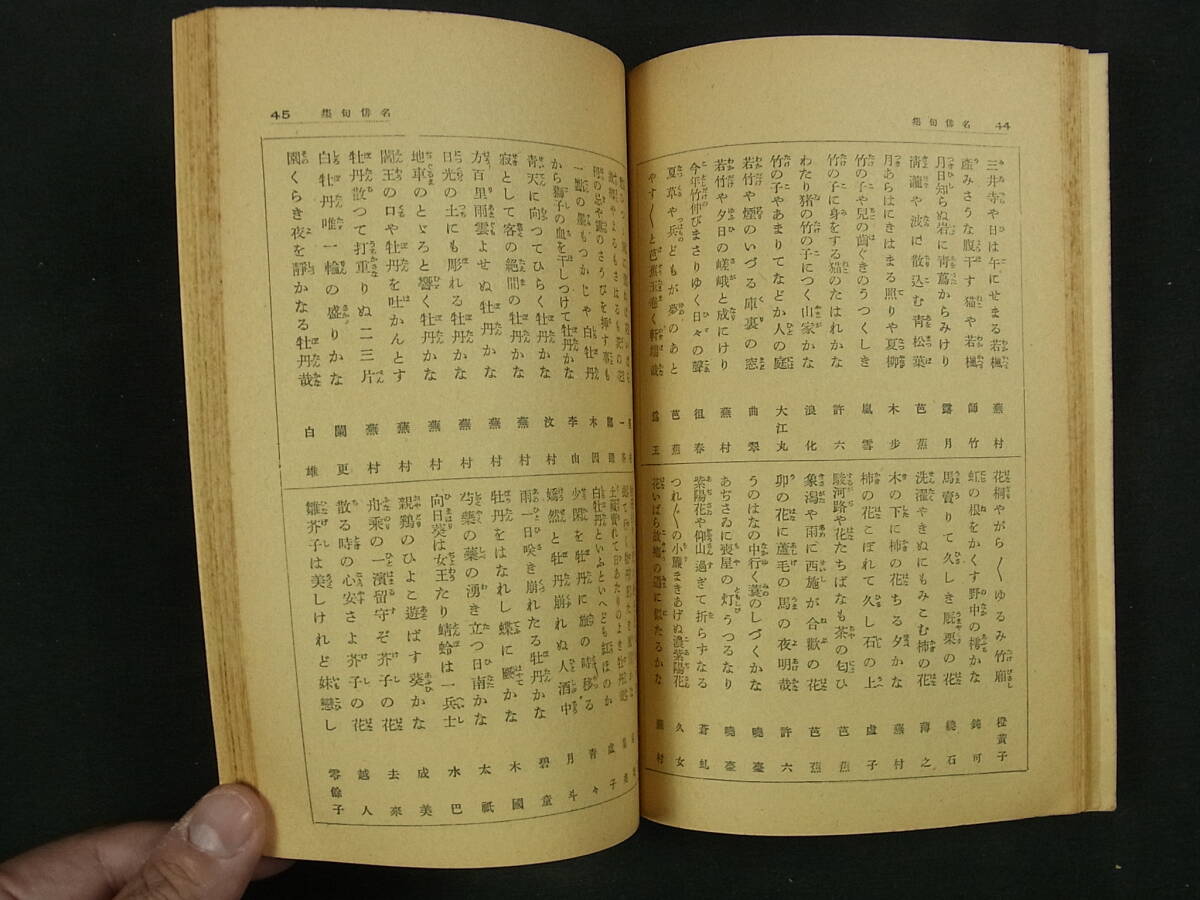 名俳句集 44
三井寺や日は午にせまる若楓 蕪村
産みさうな腹干す猫や若楓 師竹
月日知らぬ岩に青蔦からみけり 露月
清瀧や波に散込む青松葉 芭蕉
月あらはにきはまる照りや夏柳 木歩
竹の子や兒の歯ぐきのうつくしき 嵐雪
竹の子に身をする猫のたはれかな 許六
わたり猪の竹の子につく山家かな 浪化
竹の子やあまりてなどか人の庭 大江丸
若竹や煙のいづる庫裏の窓 曲翠
若竹や夕日の嵯峨と成にけり 蕪村
今年竹伸びまさりゆく日々の聲 祖春
夏草や兵どもが夢のあと 芭蕉
やす〱と芭蕉玉巻く軒端哉
花桐やがら〱ゆるみ竹廂 橙黄子
虹の根をかくす野中の樗かな 鈍可
馬賣りて久しき厩栗の花 繞石
洗濯やきぬにもみこむ柿の花 薄之
木の下に柿の花ちる夕かな 蕪村
柿の花こぼれて久し石の上 虚子
駿河路や花たちばなも茶の匂ひ 芭蕉
象潟や雨に西施が合歡の花 芭蕉
卯の花に蘆毛の馬の夜明哉 許六
うのはなの中行く蓑のしづくかな 曉臺
あぢさゐに喪屋の灯うつるなり 曉臺
紫陽花や仰山過ぎて折らずなる 蒼虬
つれ〲の小簾まきあげぬ濃紫陽花 久女
花いばら故郷の道に似たるかな 蕪村
名俳句集 45
一輪の墨もつかじや白牡丹 木因
から獅子の血を干しつけて牡丹かな 李山
青天に向つてひらく牡丹かな 汶村
寂として客の絶間の牡丹かな 蕪村
方百里雨雲よせぬ牡丹かな 蕪村
日光の土にも彫れる牡丹かな 蕪村
地車のとゞろと響く牡丹かな 蕪村
閻王の口や牡丹を吐かんとす 蕪村
牡丹散つて打重りぬ二三片 蕪村
白牡丹唯一輪の盛りかな 闌更
園くらき夜を靜かなる牡丹哉 白雄
土藏賣れて日あたりのよき牡丹
白牡丹といふといへども紅ほのか 虚子
少閑を牡丹に廊の時移る 青々
嫣然と牡丹崩れぬ人酒中 月斗
雨一日咲き崩れたる牡丹かな 碧童
牡丹をはなれし蝶に颶かな 木國
芍藥の蘂の湧き立つ日南かな 太祇
向日葵は女王たり蜻蛉は一兵士 水巴
親鶏のひよこ遊ばす葵かな 成美
舟乘の一濱留守ぞ芥子の花 去來
散る時の心安さよ芥子の花 越人
雛芥子は美しけれど妹戀し 零餘子